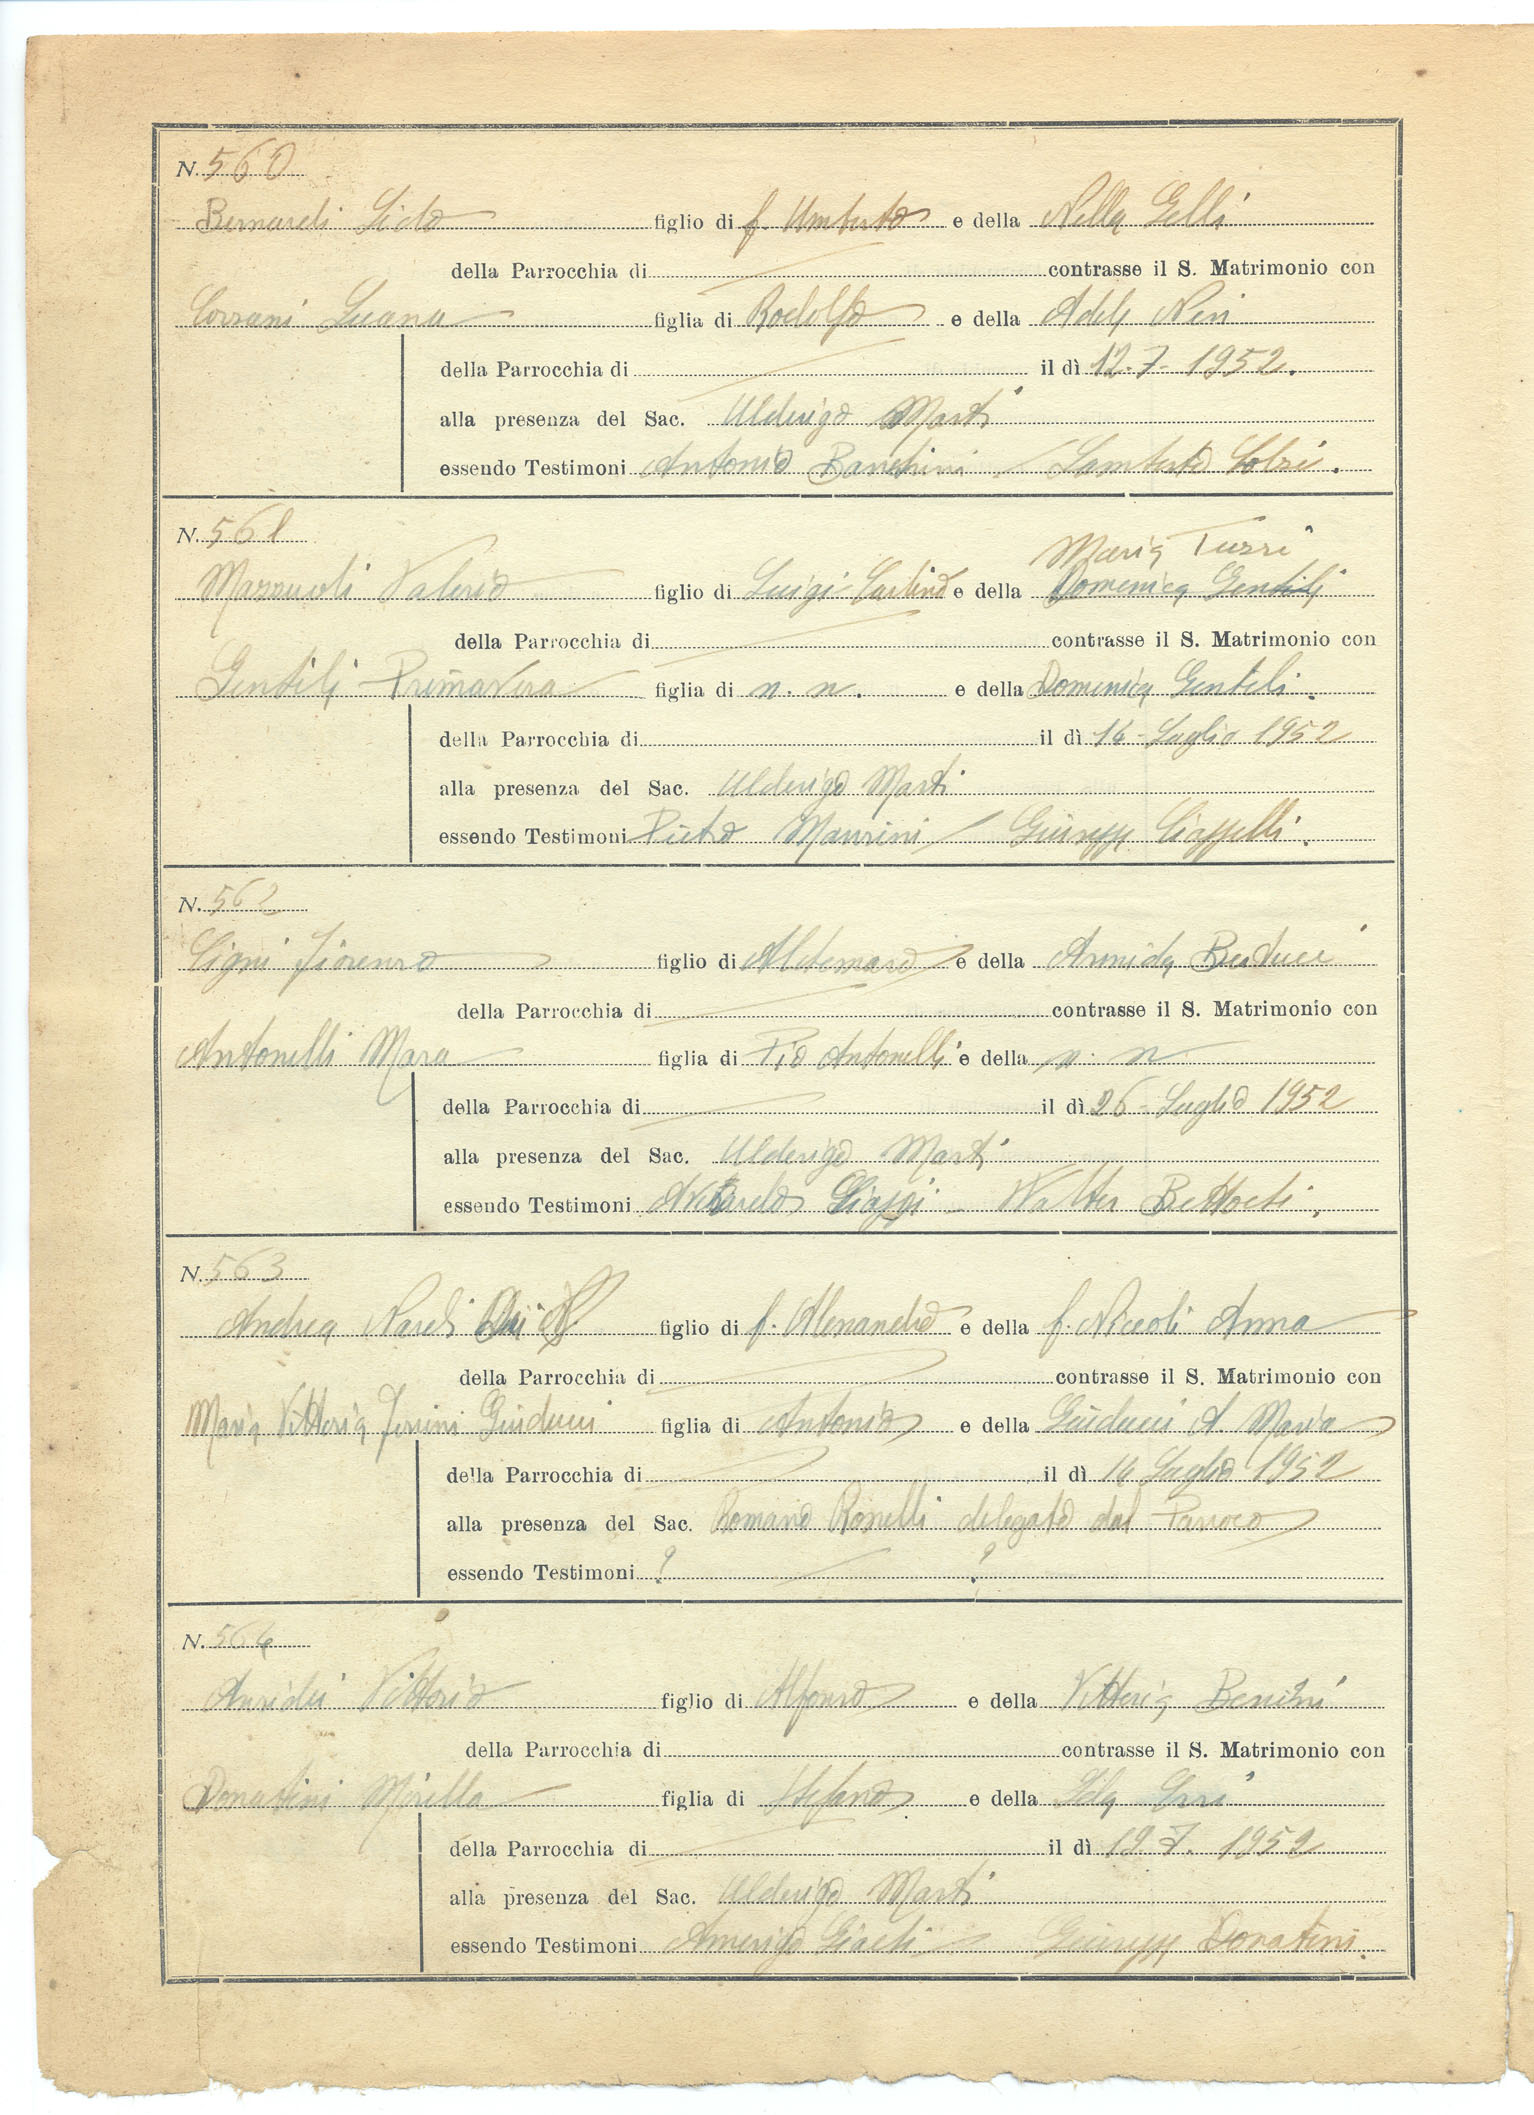 N. 560
Bernardi Lido figlio di f. Umberto e della Nella Gelli
della Parrocchia di contrasse il S. Matrimonio con
Corrani Luana figlia di Rodolfo e della Adele Neri
della Parrocchia di il dì 12.7-1952.
alla presenza del Sac. Ulderigo Marti
essendo Testimoni Antonio Banchini / Lamberto
N. 561
Maria Turri
Mazzuoli Valerio figlio di Luigi Carlino e della Domenica Gentili
della Parrocchia di contrasse il S. Matrimonio con
Gentili Primavera figlia di n. n. e della Domenica Gentili.
della Parrocchia di il dì 14-Luglio 1952
alla presenza del Sac. Ulderigo Marti
essendo Testimoni Pietro Manzini / Giuseppe Ciappelli.
N. 562
Cigni Fiorenzo figlio di Aldemaro e della Armida Bertucci
della Parrocchia di contrasse il S. Matrimonio con
Antonelli Mara figlia di Pio Antonelli e della n. n.
della Parrocchia di il dì 26-Luglio 1952
alla presenza del Sac. Ulderigo Marti
essendo Testimoni - Walter
N. 563
Andrea Nardi Dei figlio di f. Alessandro e della f. Niccoli Anna
della Parrocchia di contrasse il S. Matrimonio con
Maria Vittoria Guiducci figlia di Antonio e della Guiducci A. Maria
della Parrocchia di il dì 14 Luglio 1952
alla presenza del Sac. Romano Rosselli delegato dal Parroco
essendo Testimoni ? ?
N. 564
Vittorio figlio di Alfonso e della Vittoria Benini
della Parrocchia di contrasse il S. Matrimonio con
Donatini Mirella figlia di Stefano e della Ida
della Parrocchia di il dì 19.7.1952
alla presenza del Sac. Ulderigo Marti
essendo Testimoni Amerigo - Giuseppe Donatini.